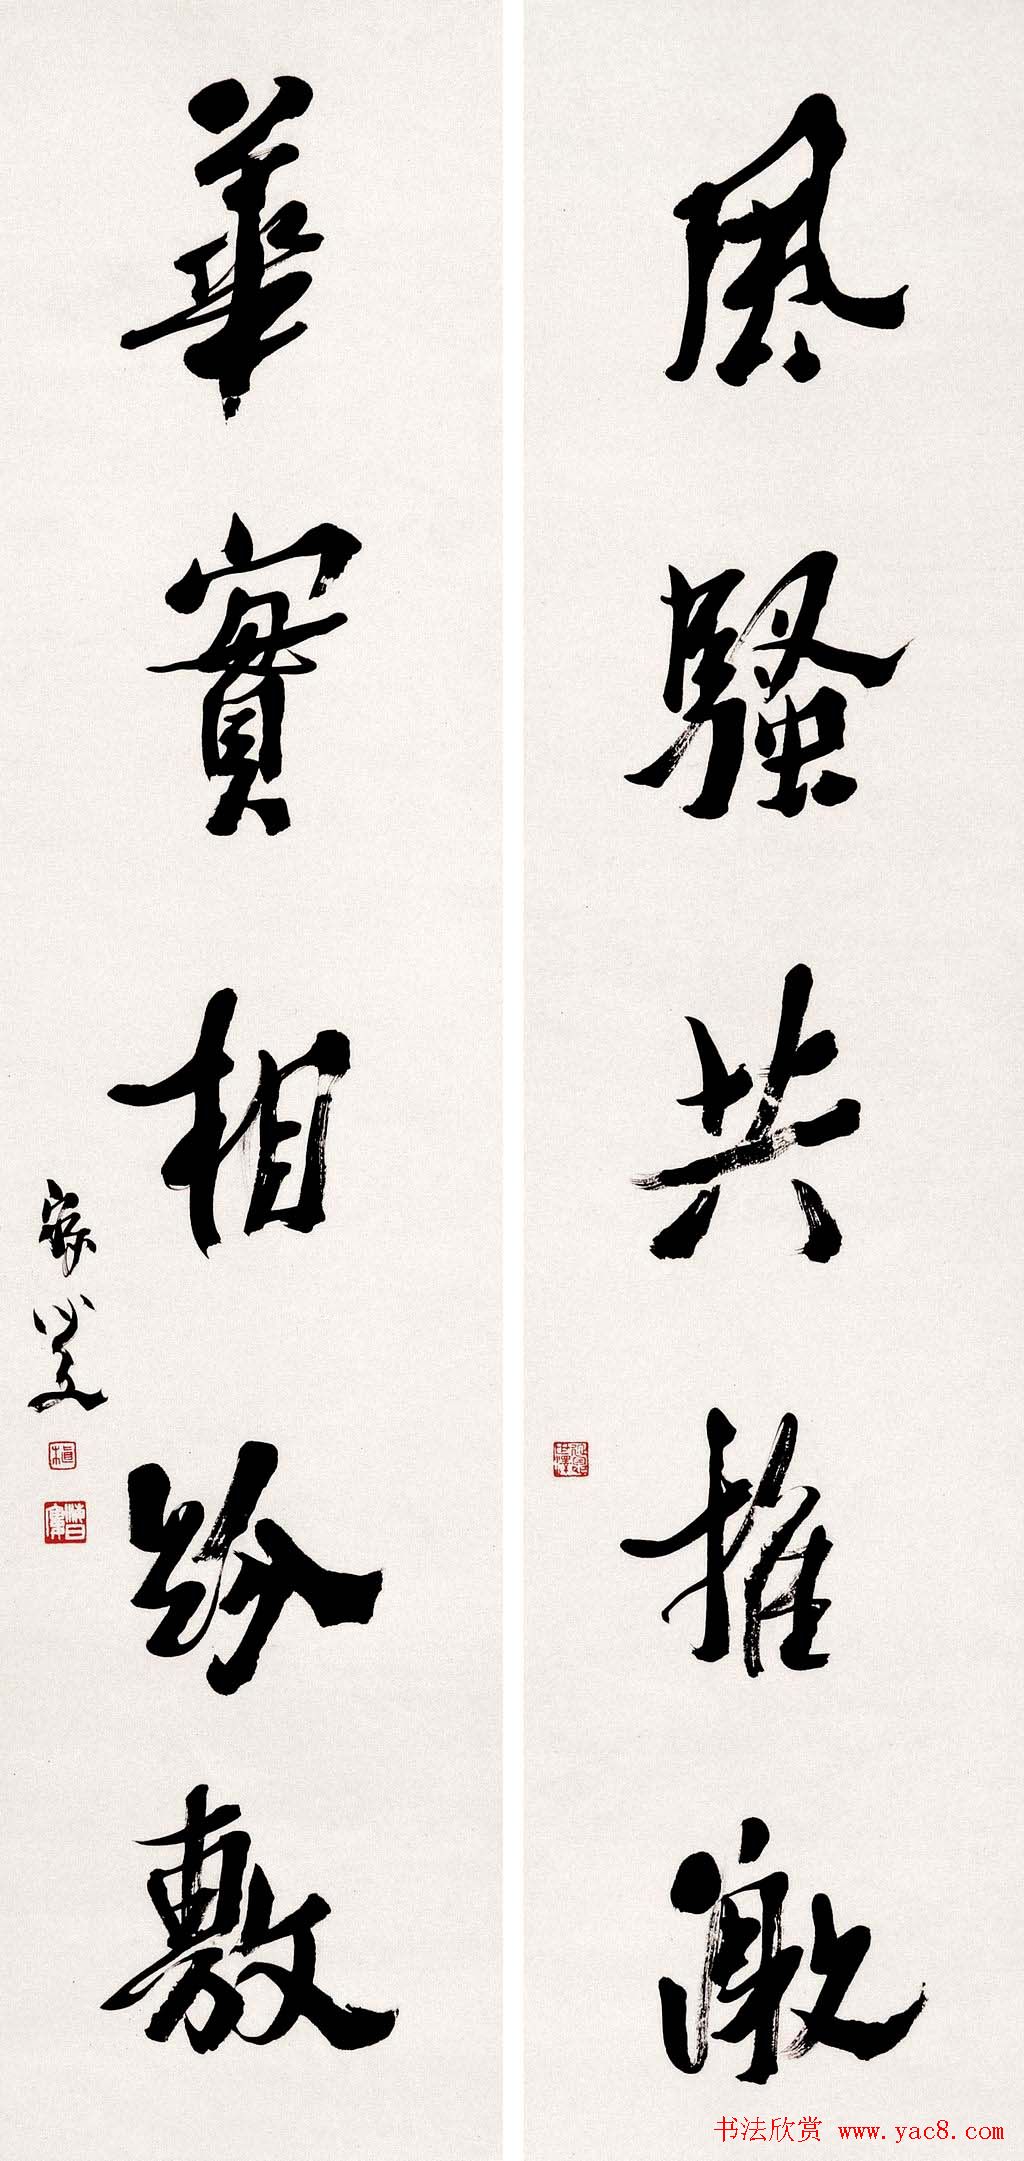 風騷共推激
華實相紛敷
寐叟
書法欣赏 www.yac8.com